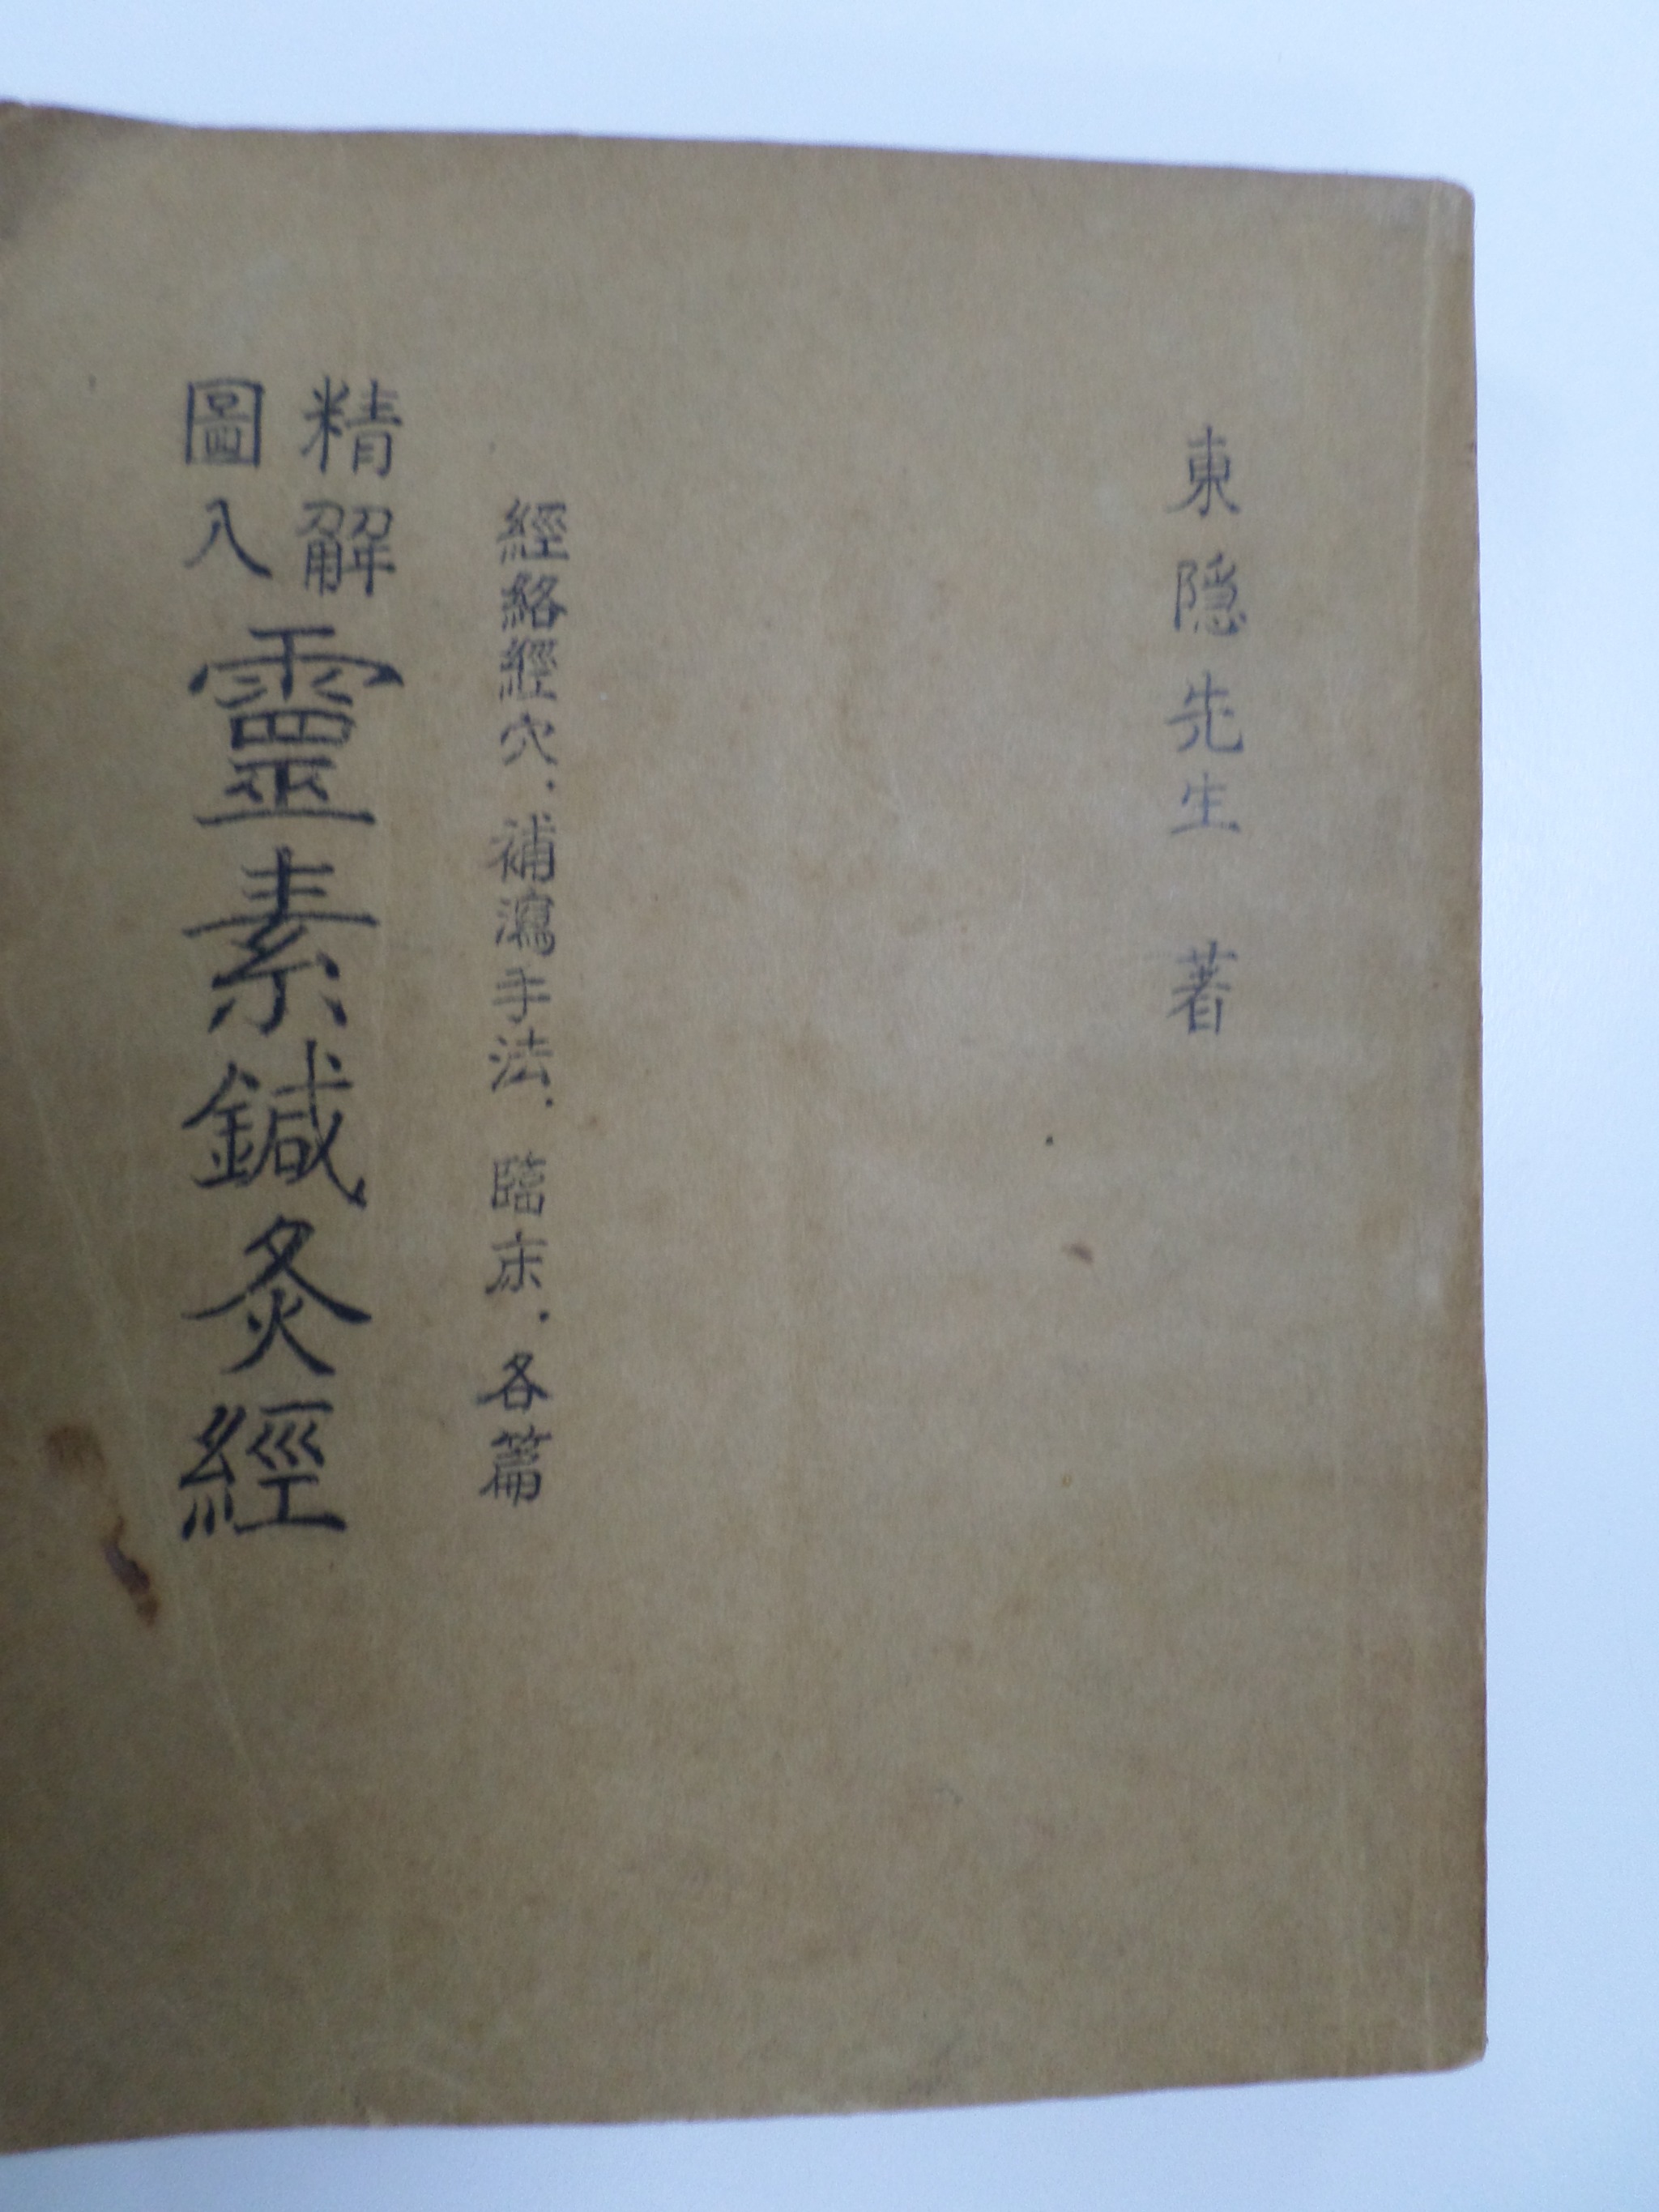 東隐先生 著
經絡經穴．補瀉手法．臨床．各篇
精解
圖入
靈素鍼灸經